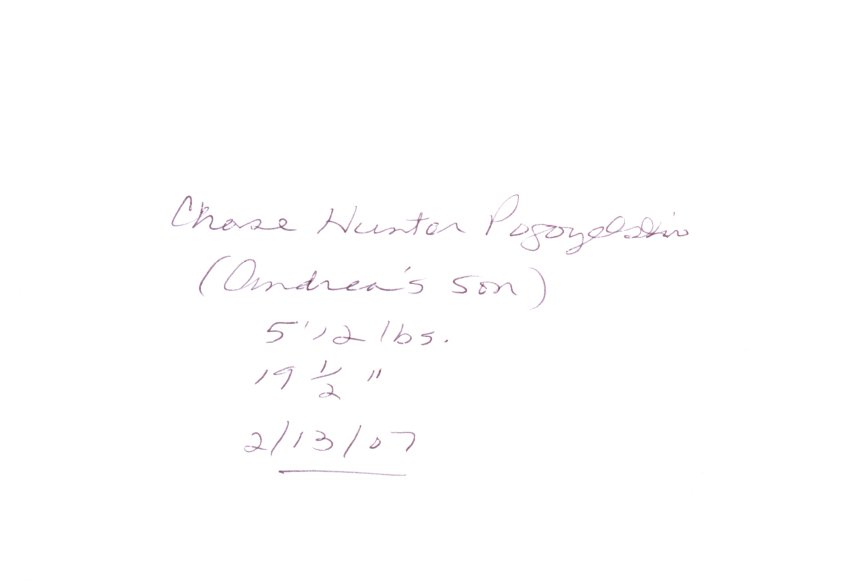 Chase Hunter
(Andrea's son)
5'12 lbs.
19 1/2 "
2/13/07